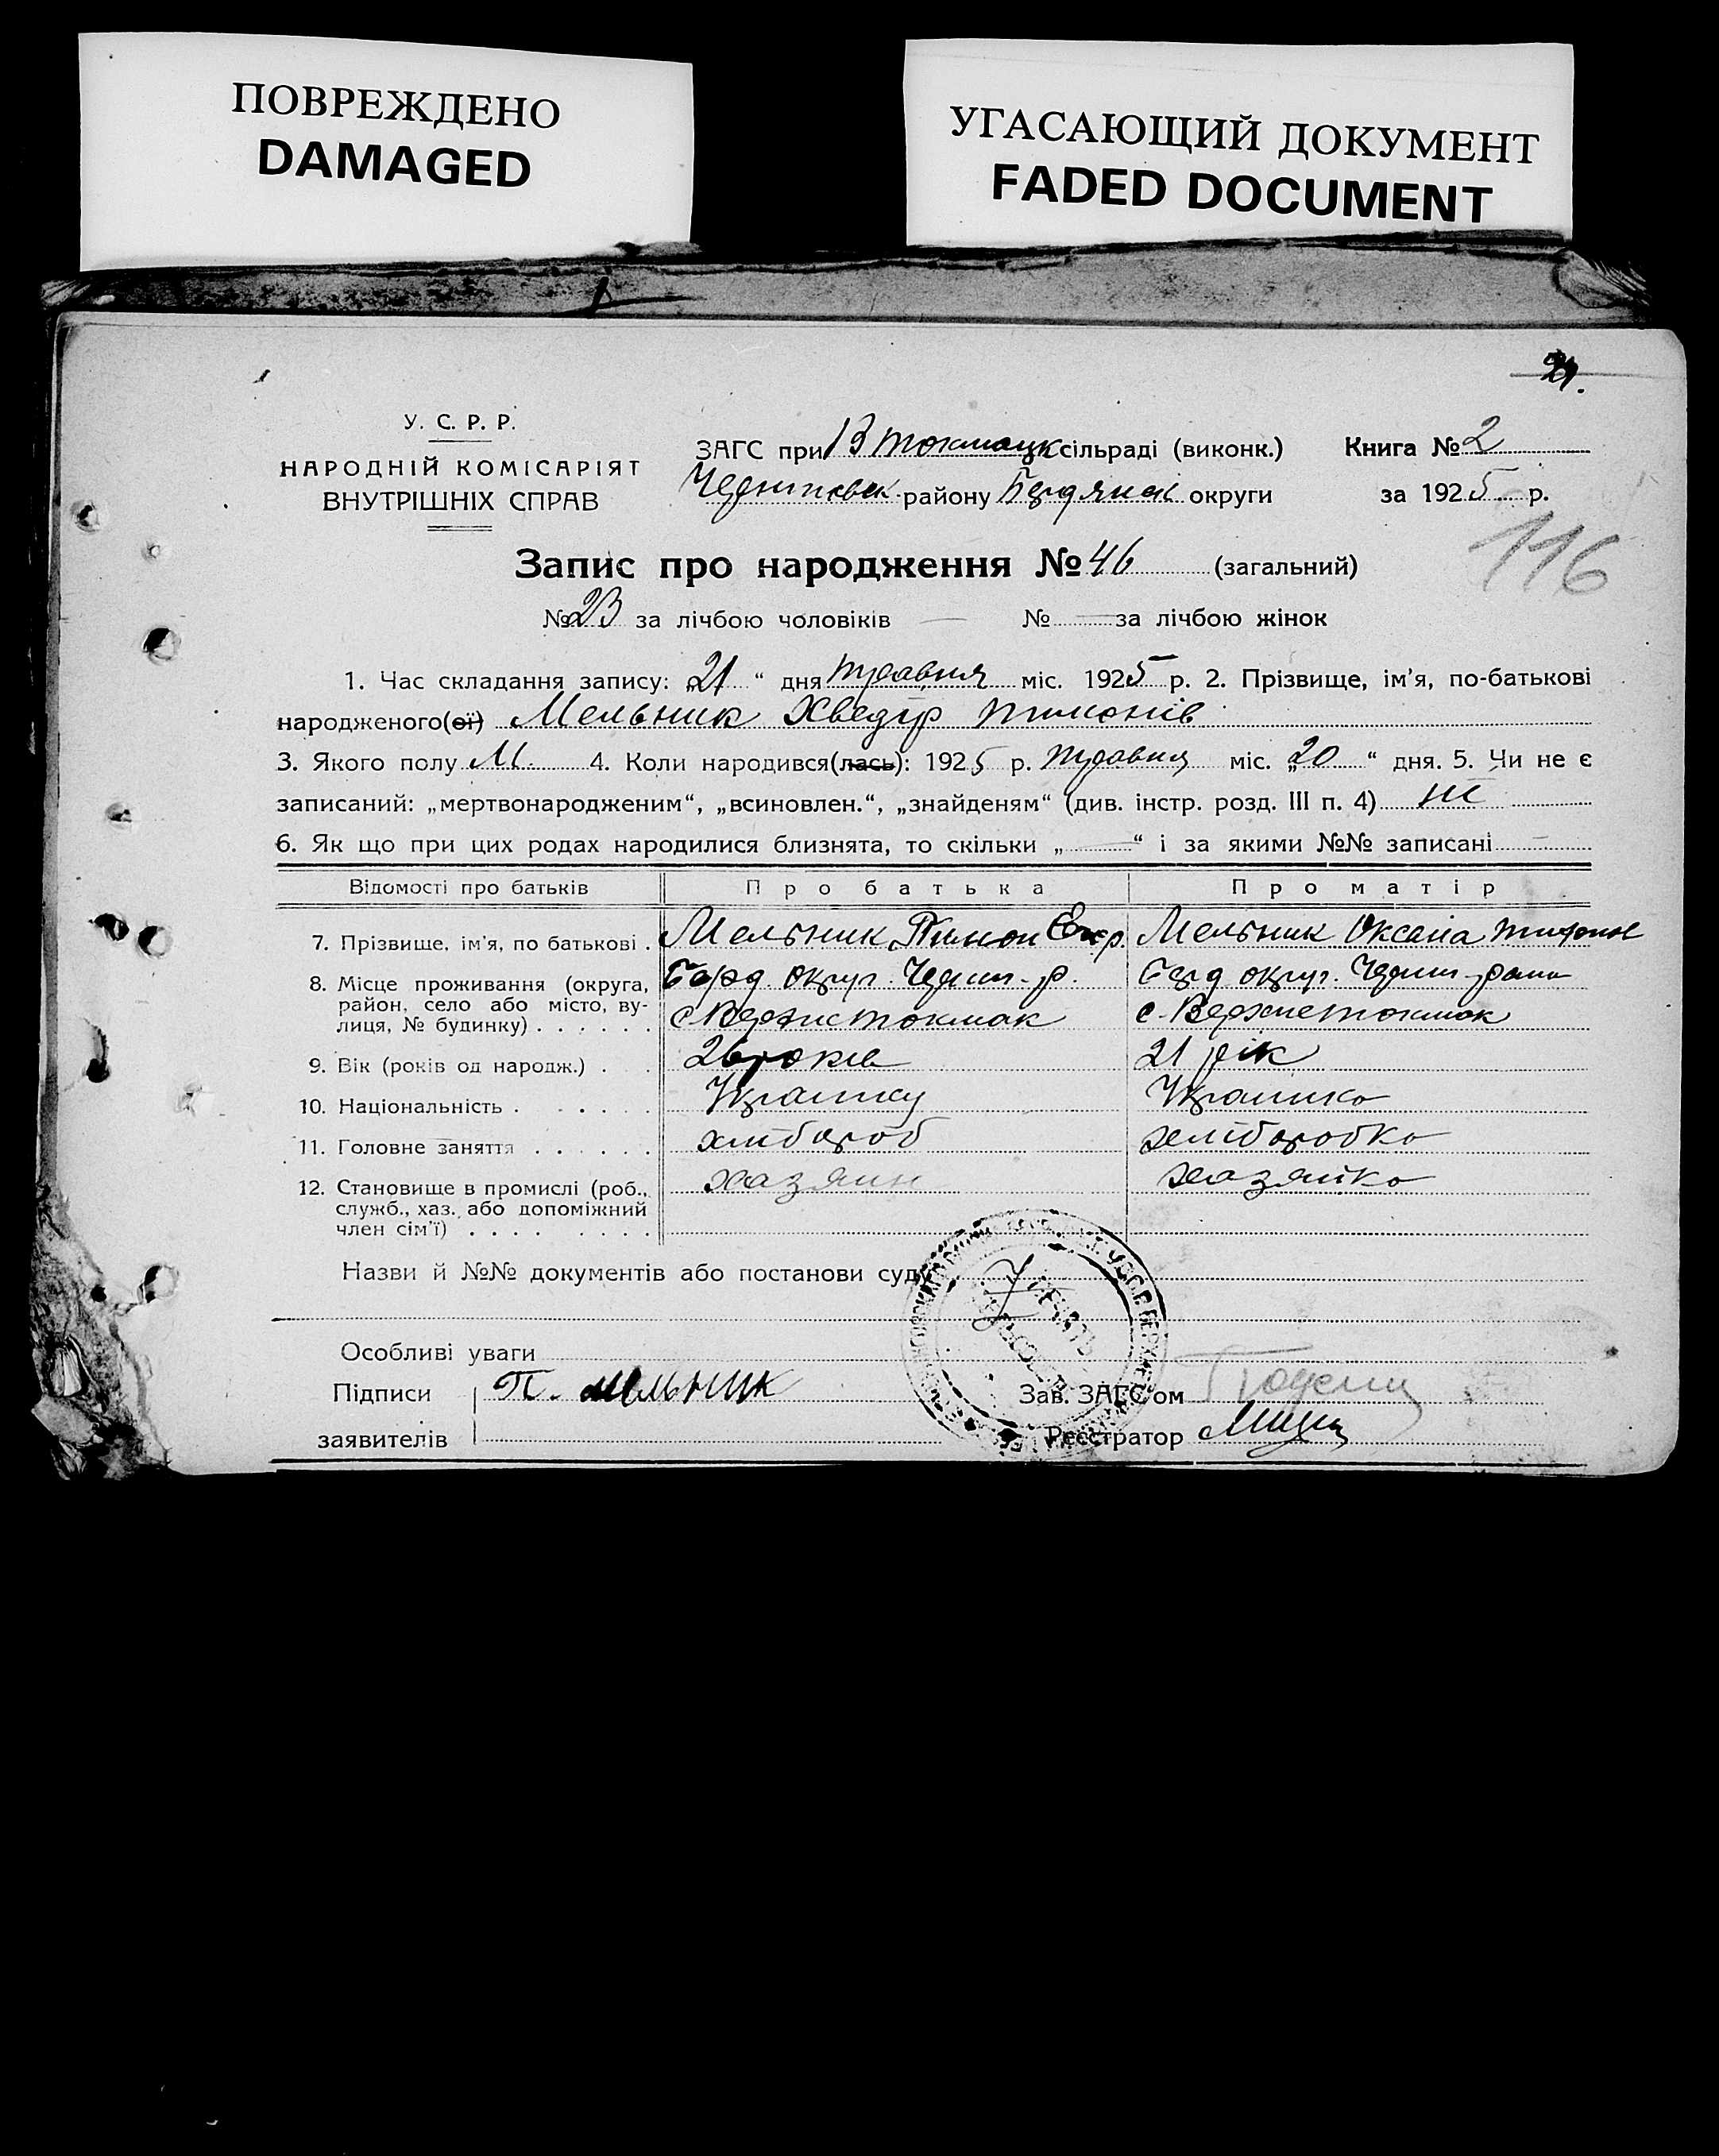 ПОВРЕЖДЕНО
DAMAGED
УГАСАЮЩИЙ ДОКУМЕНТ
FADED DOCUMENT
У. С. Р. Р.
НАРОДНІЙ КОМІСАРІЯТ
ВНУТРІШНІХ СПРАВ
ЗАГС при В Токмацк сільраді (виконк.) Книга № 2
району Бердянськ округи за 1925 р.
116
Запис про народження № 46 (загальний)
№ 23 за лічбою чоловіків — № — за лічбою жінок
1. Час складання запису: „21“ дня травня міс. 1925 р. 2. Прізвище, ім'я, по-батькові
народженого(ої) Мельник Хведір Тимонів
3. Якого полу М. 4. Коли народився(лась): 1925 р. травня міс. „20“ дня. 5. Чи не є
записаний: „мертвонародженим“, „всиновлен.“, „знайденям“ (див. інстр. розд. III п. 4) ні
6. Як що при цих родах народилися близнята, то скільки „—“ і за якими №№ записані —
Відомості про батьків Про батька Про матір
7. Прізвище, ім'я, по батькові . Мельник Тимон Мельник Оксана
8. Місце проживання (округа, Берд. округ. Черниг. р. Берд округ. Черниг.
район, село або місто, ву- с Верхнетокмак с. Верхнетокмак
лиця, № будинку) . . . . . .
9. Вік (років од народж.) . . 26 років 21 рік
10. Національність . . . . . . Українец Українка
11. Головне заняття . . . . . . хлібороб хліборобка
12. Становище в промислі (роб., хазяин хазяйка
служб., хаз. або допоміжний
член сім'ї) . . . . . . . .
Назви й №№ документів або постанови суду
Особливі уваги
Підписи П. Мельник Зав. ЗАГС'ом
заявителів Реєстратор